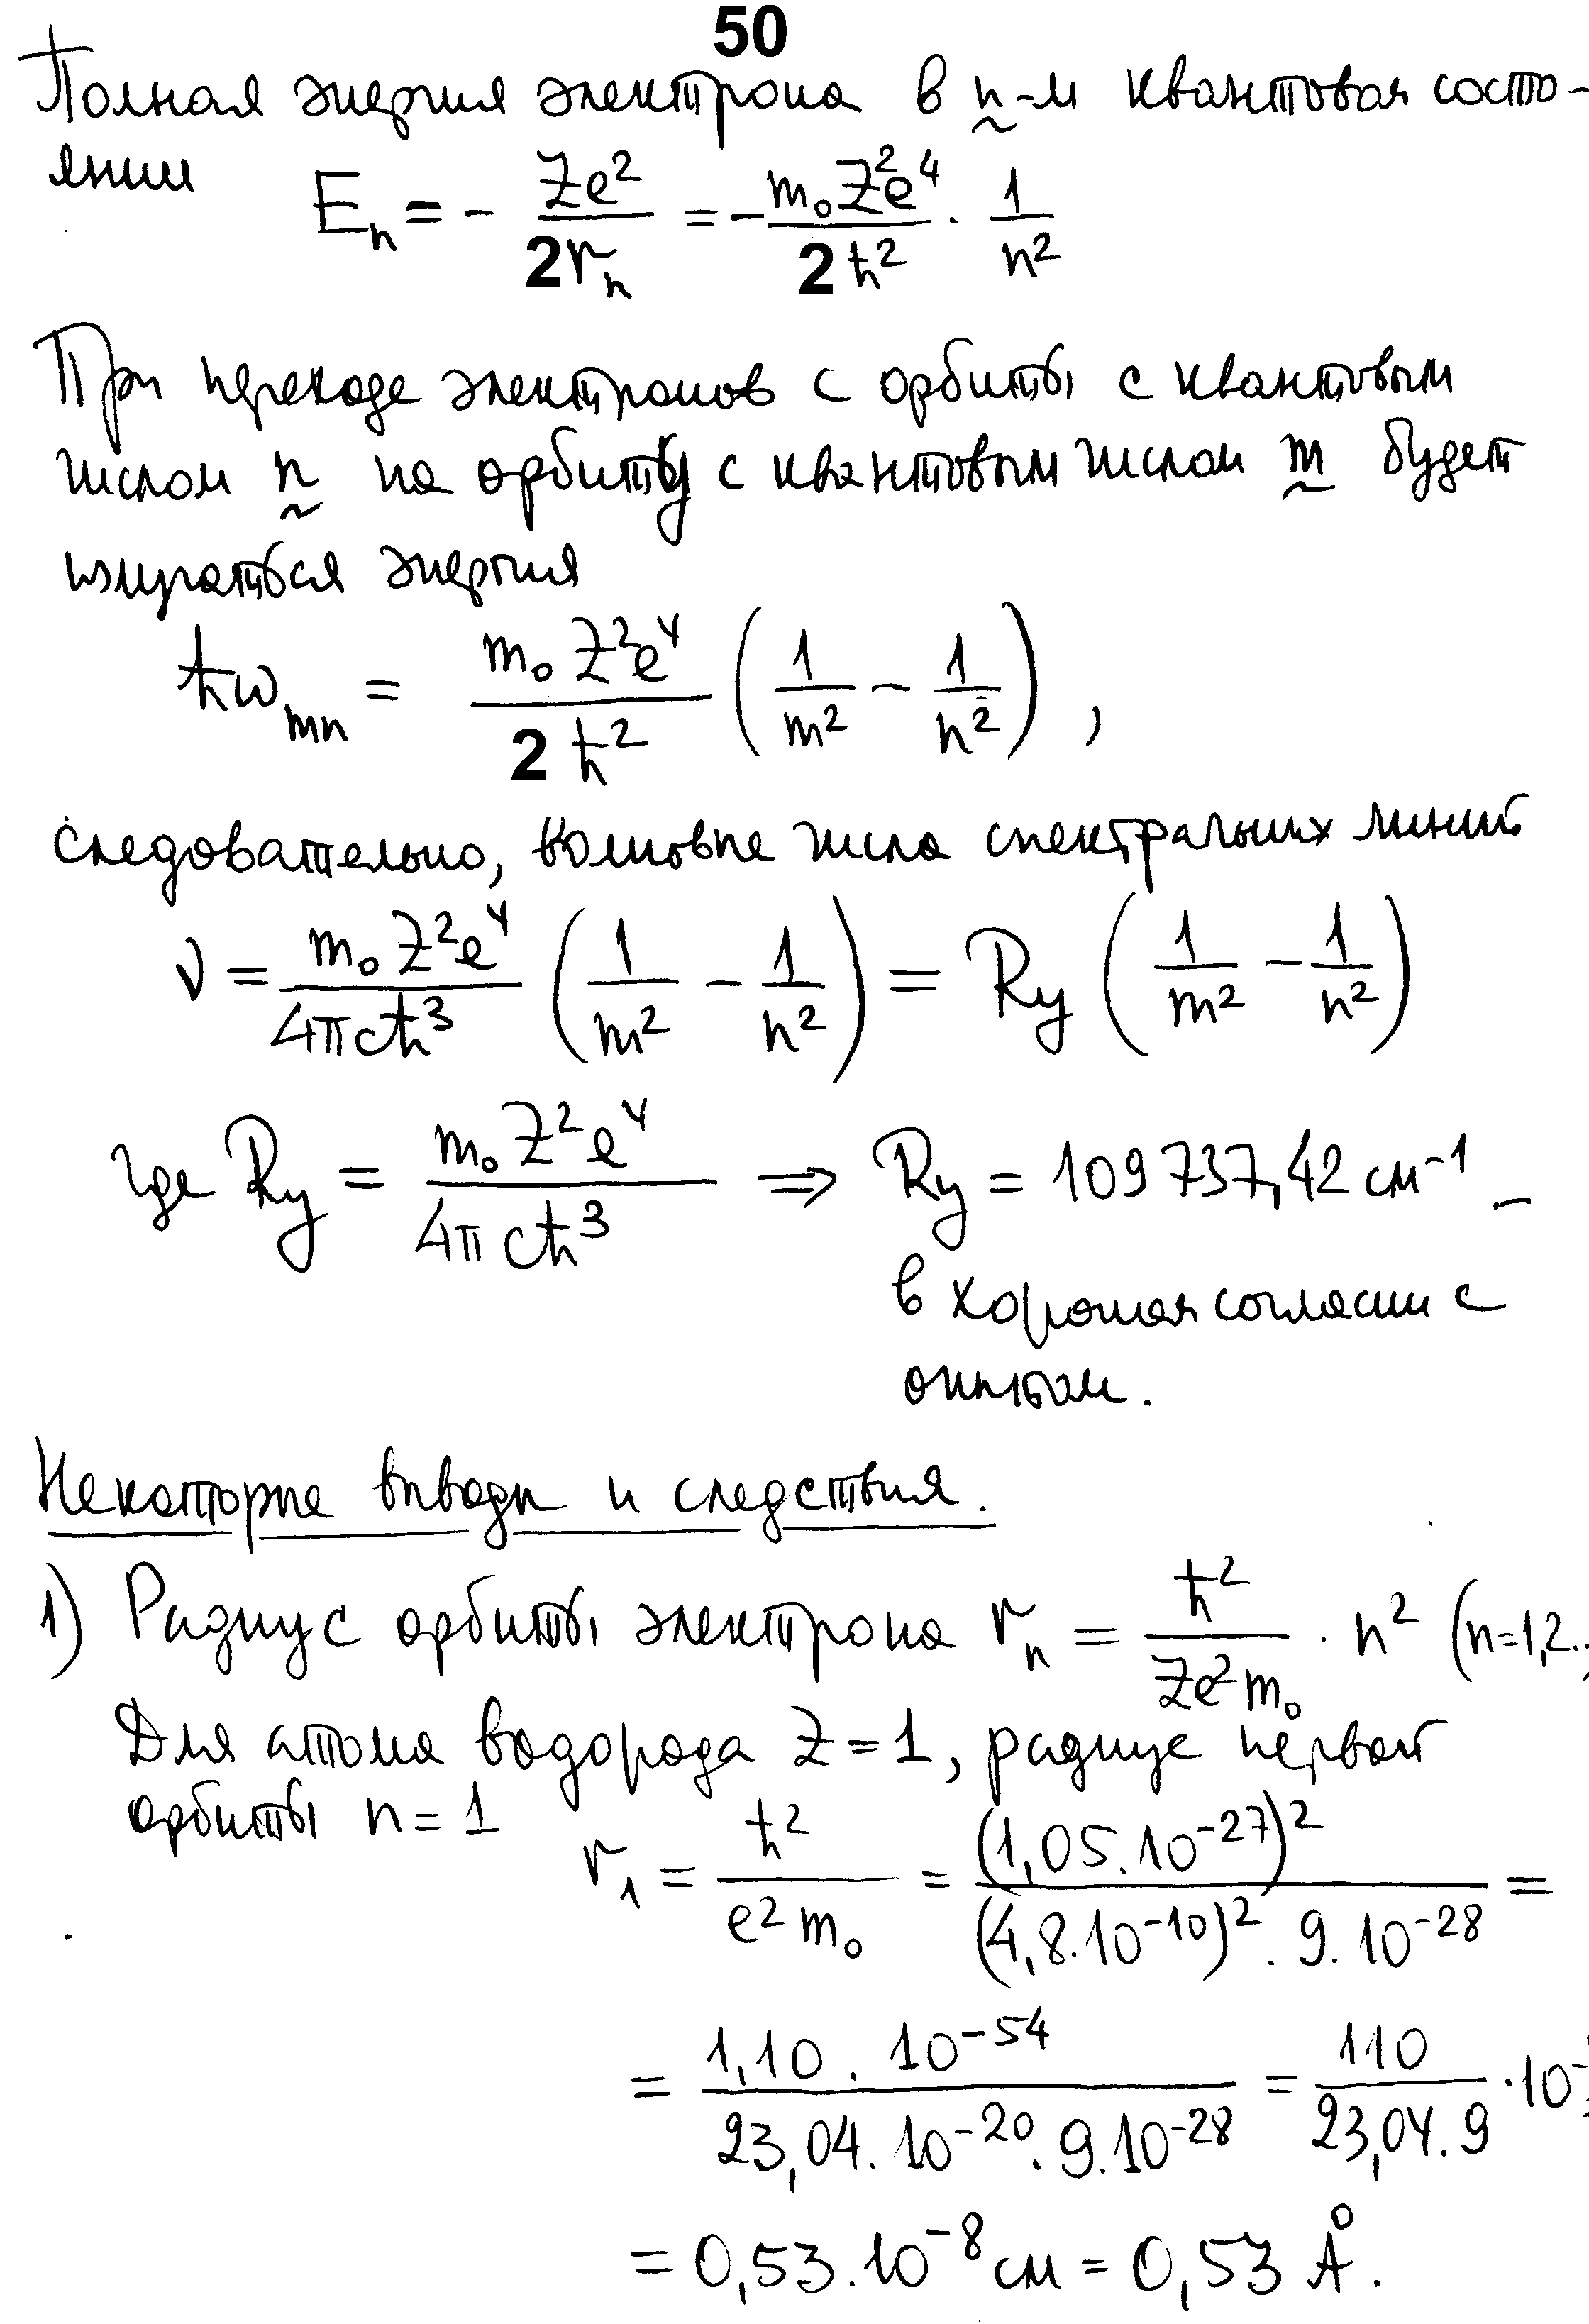 50
Полная энергия электрона в n-м квантовом состо-
янии
Eₙ = - Ze²/2rₙ = - m₀Z²e⁴/2ħ² · 1/n²
При переходе электронов с орбиты с квантовым
числом n на орбиту с квантовым числом m будет
излучаться энергия
ħωₘₙ = m₀Z²e⁴/2ħ² (1/m² - 1/n²),
следовательно, волновые числа спектральных линий
ν = m₀Z²e⁴/4πcħ³ (1/m² - 1/n²) = Ry (1/m² - 1/n²)
где Ry = m₀Z²e⁴/4πcħ³ ⇒ Ry = 109 737,42 см⁻¹ –
в хорошем согласии с
опытом.
Некоторые выводы и следствия.
1) Радиус орбиты электрона rₙ = ħ²/Ze²m₀ · n² (n=1,2..)
Для атома водорода Z = 1, радиус первой
орбиты n = 1
r₁ = ħ²/e²m₀ = (1,05.10⁻²⁷)²/(4,8.10⁻¹⁰)² . 9.10⁻²⁸ =
= 1,10 . 10⁻⁵⁴/23,04.10⁻²⁰.9.10⁻²⁸ = 110/23,04.9 · 10⁻
= 0,53.10⁻⁸ см = 0,53 Å.